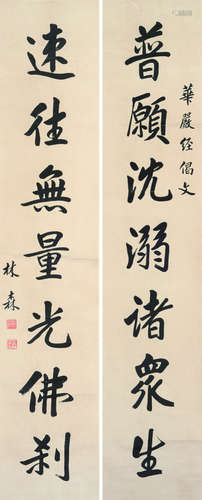 華嚴經偈文
普願沈溺諸眾生
速往無量光佛刹
林森